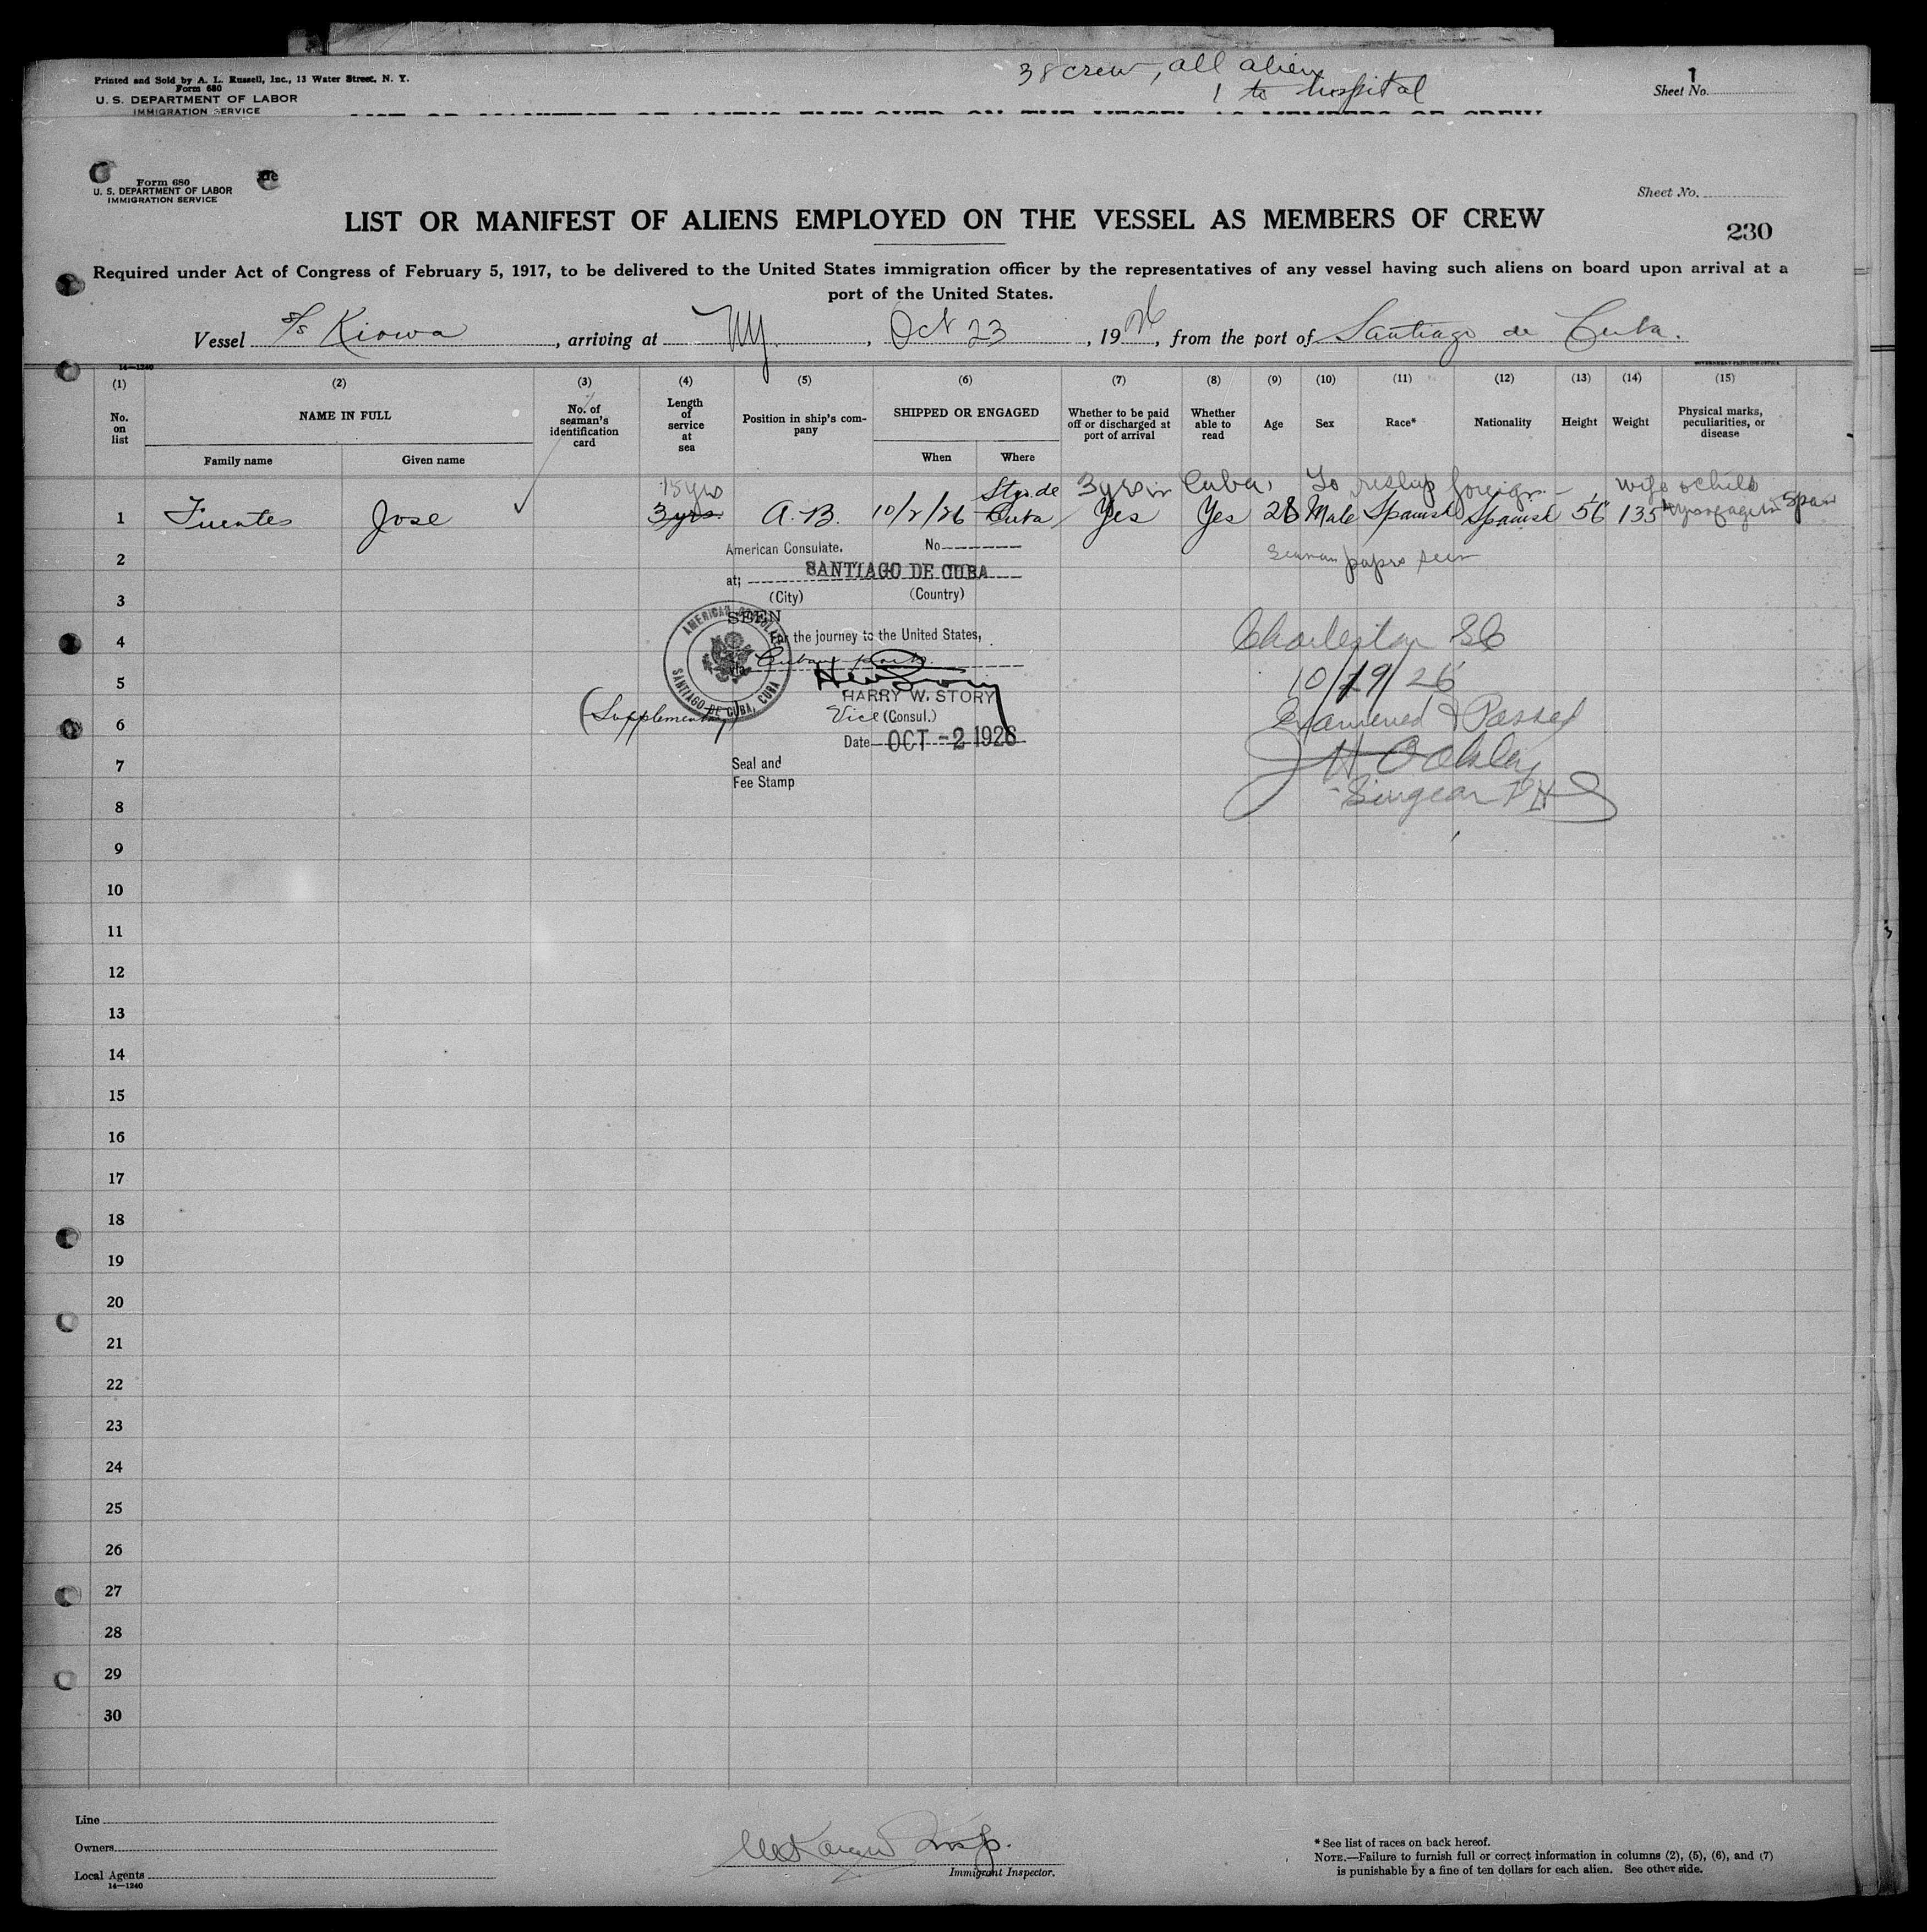 Printed and Sold by A. L. Russell, Inc., 13 Water Street, N. Y.
Form 680
U. S. DEPARTMENT OF LABOR
IMMIGRATION SERVICE
38 crew, all alien
1 to hospital
1
Sheet No.
LIST OR MANIFEST OF ALIENS EMPLOYED ON THE VESSEL AS MEMBERS OF CREW
Form 680
U. S. DEPARTMENT OF LABOR
IMMIGRATION SERVICE
Sheet No.
LIST OR MANIFEST OF ALIENS EMPLOYED ON THE VESSEL AS MEMBERS OF CREW
230
Required under Act of Congress of February 5, 1917, to be delivered to the United States immigration officer by the representatives of any vessel having such aliens on board upon arrival at a
port of the United States.
Vessel S/S Kiowa, arriving at NY, Oct 23, 1926, from the port of Santiago de Cuba.
14—1240
(1) (2) (3) (4) (5) (6) (7) (8) (9) (10) (11) (12) (13) (14) (15)
No. on list
NAME IN FULL
Family name
Given name
No. of seaman's identification card
Length of service at sea
Position in ship's company
SHIPPED OR ENGAGED
When
Where
Whether to be paid off or discharged at port of arrival
Whether able to read
Age
Sex
Race*
Nationality
Height
Weight
Physical marks, peculiarities, or disease
15 yrs Stgo. de 3 yrs in Cuba, To reship foreign – wife & child
1 Fuentes Jose 3 yrs. A. B. 10/2/26 Cuba Yes Yes 28 Male Spanish Spanish 5 6 135 Spain
Seaman papers seen
2
3
4
5
6
7
8
9
10
11
12
13
14
15
16
17
18
19
20
21
22
23
24
25
26
27
28
29
30
American Consulate. No
at; SANTIAGO DE CUBA
(City) (Country)
SEEN
For the journey to the United States,
via Cuban ports
HARRY W. STORY
Vice (Consul.)
Date OCT - 2 1926
Seal and
Fee Stamp
AMERICAN CONSULATE
SANTIAGO DE CUBA, CUBA
(Supplementary)
Charleston SC
10/19/26
Examined & Passed
J H Oakley
Surgeon PHS
Line
Owners
Local Agents
14—1240
Insp.
Immigrant Inspector.
* See list of races on back hereof.
NOTE.—Failure to furnish full or correct information in columns (2), (5), (6), and (7)
is punishable by a fine of ten dollars for each alien. See other side.